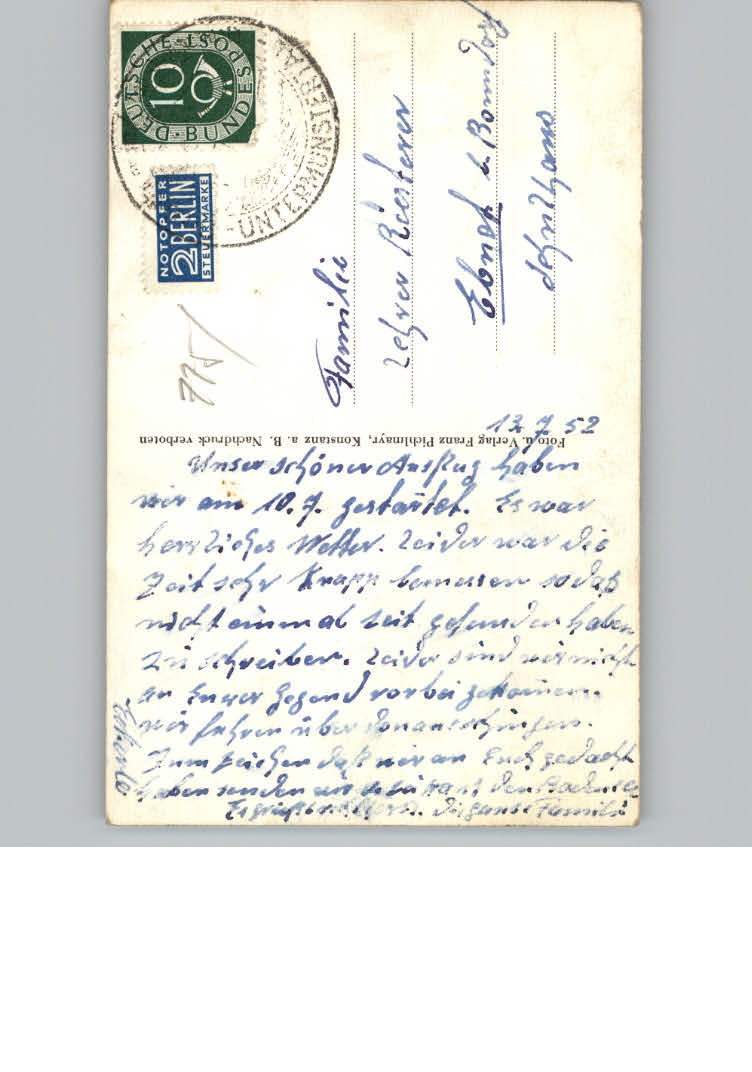 DEUTSCHE BUNDESPOST
10
UNTERMÜNSTERTAL
NOTOPFER
2 BERLIN
STEUERMARKE
775/
Familie
Lehrer Riesterer
Ebnet b. Bonndorf
Schulhaus
Foto u. Verlag Franz Pichlmayr, Konstanz a. B. Nachdruck verboten
13.7.52
Unser schöner Ausflug haben
wir am 10.7. gestartet. Es war
herrliches Wetter. Leider war die
Zeit sehr knapp bemessen sodaß
nicht einmal Zeit gefunden haben
zu schreiben. Leider sind wir nicht
an Euer Gegend vorbei gekommen.
wir fuhren über Donaueschingen.
Zum Zeichen daß wir an Euch gedacht
haben senden wir den Bodensee
Es grüßt Herzl. die ganze Familie